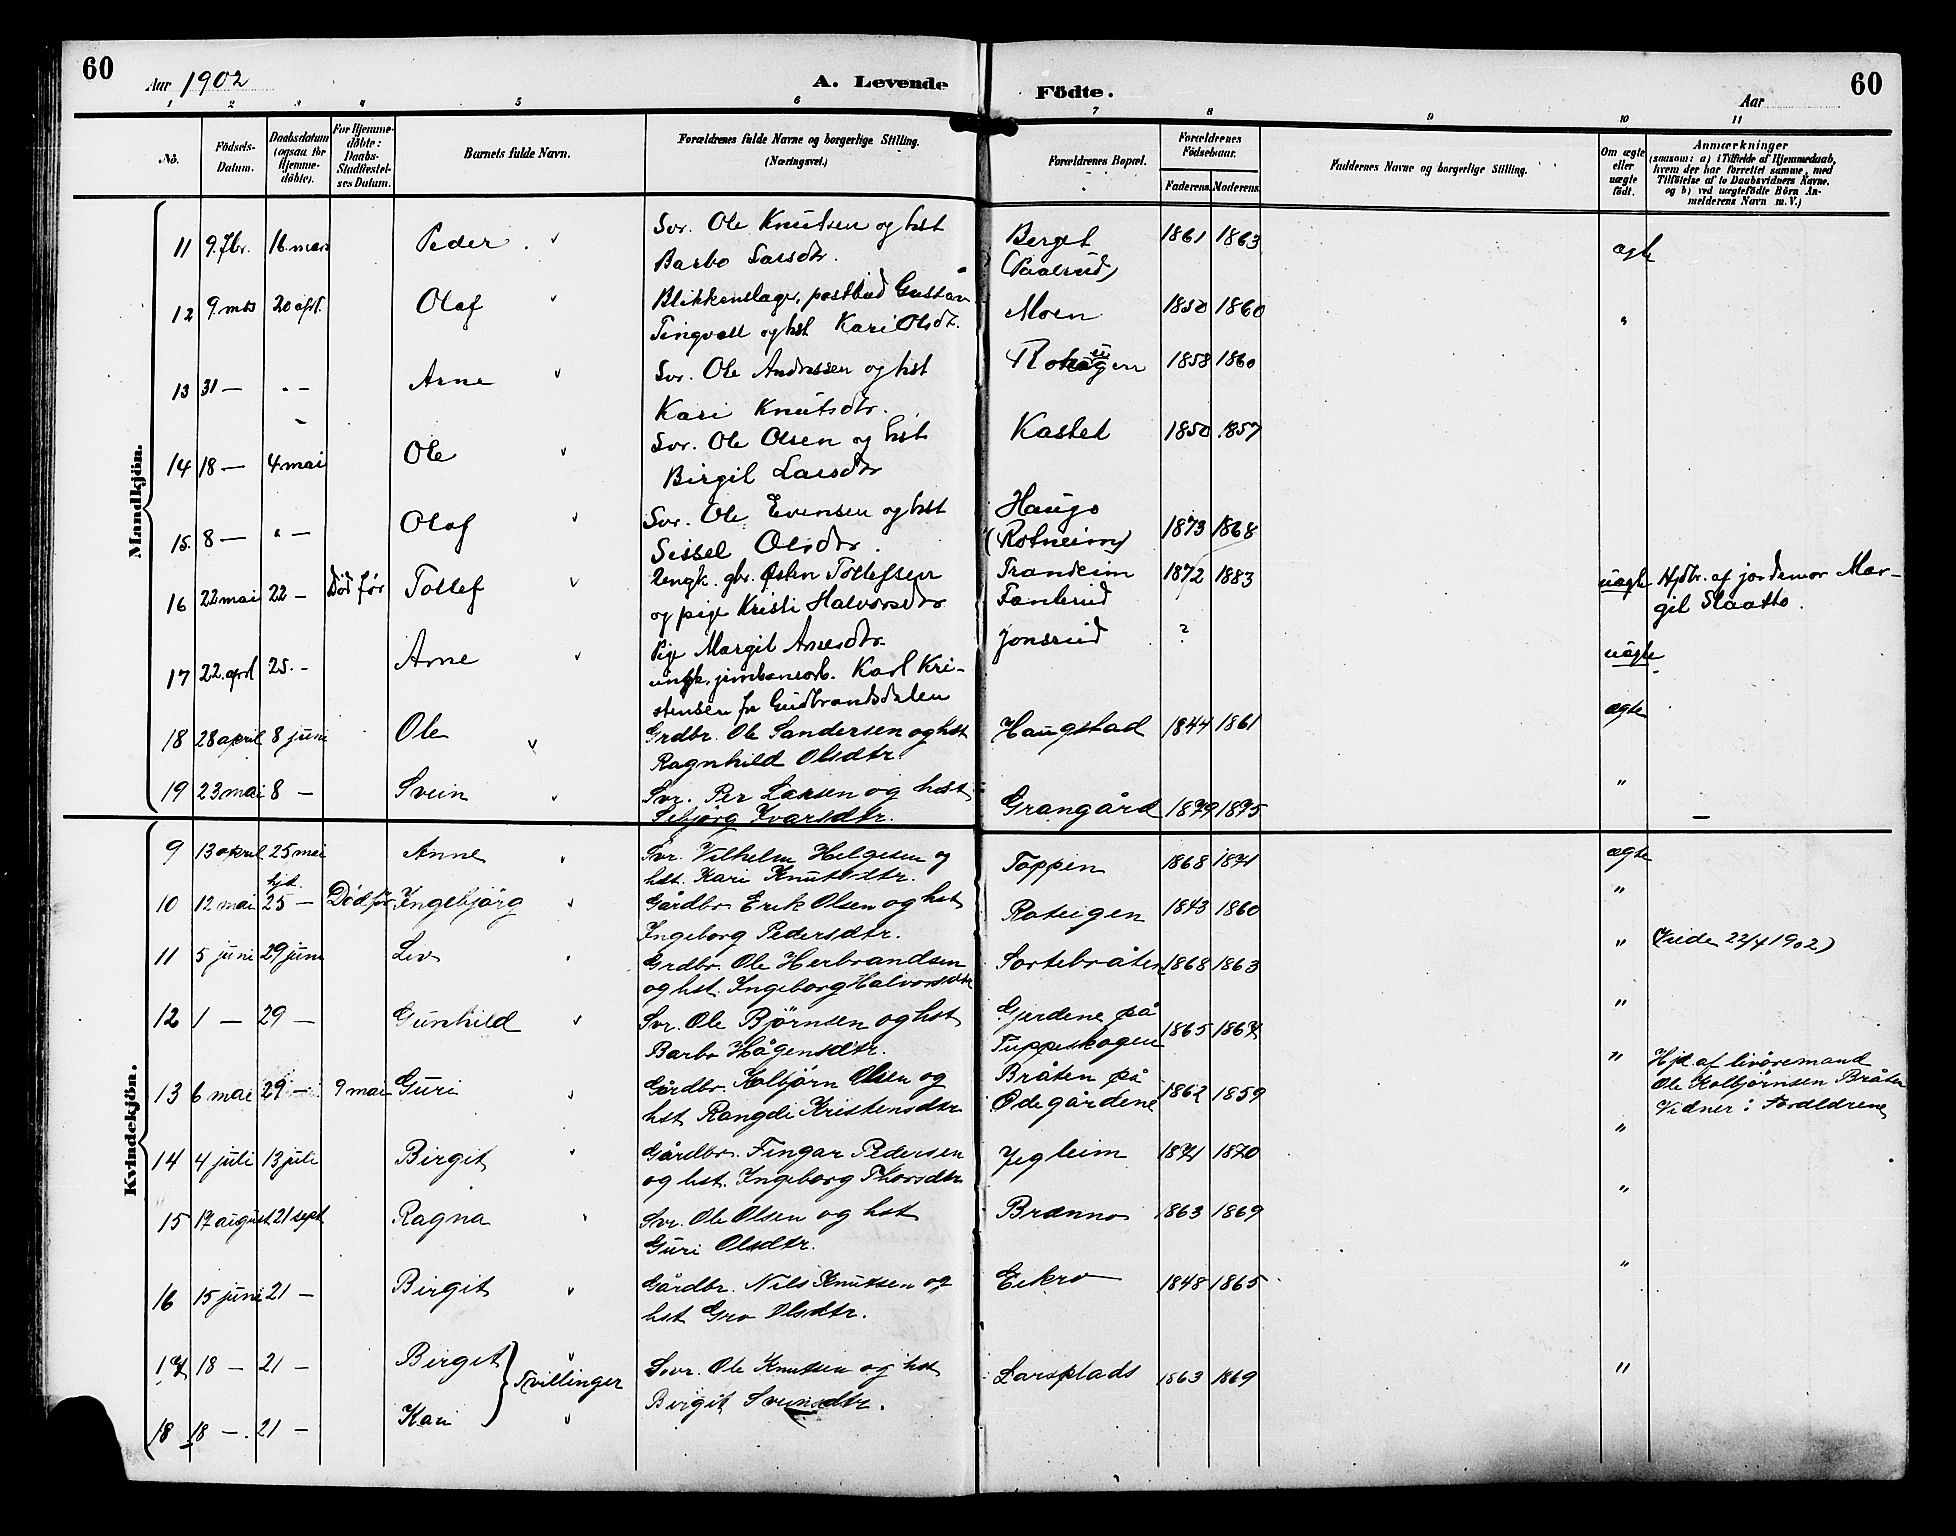 60
Aar 1902
A. Levende
Födte.
Aar
60
1 2 3 4 5 6 7 8 9 10 11
No.
Födsels-Datum.
Daabsdatum (ogsaa for Hjemme-döbte).
For Hjemme-döbte: Daabs-Stadfæstel-ses Datum.
Barnets fulde Navn.
Forældrenes fulde Navne og borgerlige Stilling. (Næringsvei.)
Forældrenes Bopæl.
Forældrenes Födselsaar.
Faderens. Moderens.
Faddernes Navne og borgerlige Stilling.
Om ægte eller uægte födt.
Anmærkninger (saasom: a) i Tilfælde af Hjemmedaab, hvem der har forrettet samme, med Tilföielse af to Daabsvidners Navne, og b) ved uægtefödte Börn An-melderens Navn m. V.)
Mandkjön.
11 9 7br. 16 mars Peder Svr. Ole Knutsen og hst Berget 1861 1863 ægte
Barbo Larsdtr. (Paalsrud)
12 9 mrs 20 apr. Olaf Blikkenslager, postbud Gustav Moen 1850 1860 "
Tingvall og hst Kari Olsdtr.
13 31 — " — Arne Svr. Ole Andressen og hst Roteigen 1858 1860
Kari Knutsdtr.
14 18 — 4 mai Ole Svr. Ole Olsen og hst Kastet 1850 1857
Birgit Larsdtr
15. 8 — " — Olaf Svr. Ole Evensen og hst Haugo 1873 1868
Sissel Olsdtr. (Rotneim)
16 22 mai 22 — Död för Tollef Ungk. gbr. Østen Tollefsen Trandeim 1872 1883 uægte Hjdbr. af jordemor Mar-
og pige Kristi Halvorsdtr git Slaatto.
17 22. aprl 25. - Arne Pige Margit Arnesdtr. Jonsrud ? uægte
ungk. jernbanearb. Karl Kri-
stensen fra Gudbrandsdalen
18 28 april 8 juni Ole Grdbr. Ole Sandersen og hst Haugstad 1844 1861 ægte
Ragnhild Olsdtr.
19 23 mai 8 — Svein Svr. Per Larsen og hst Grangård 1879 1875 "
Ivarsdtr.
Kvindekjön.
9 13 april 25 mai Anne Svr. Vilhelm Helgesen og Toppen 1868 1871 ægte
hst. Kari Knutsdtr.
10 12 mai 25 — Död för Ingebjörg Gårdbr. Erik Olsen og hst Roteigen 1843 1860 "
Ingeborg Pedersdtr.
11 5 juni 29 juni Liv Grdbr. Ole Herbrandsen Sortebråten 1868 1863 " (Viede 22/4 1902)
og hst. Ingeborg Halvorsdtr
12 1 — 29 — Gunhild Svr. Ole Björnsen og hst Gjerdene på 1865 1867 "
Barbo Hågensdtr. Tuppeskogen
13 6 mai 29 — 9 mai Guri Gårdbr. Kolbjörn Olsen og Bråten på 1862 1859 " Hjd af livöremand
hst Rangdi Kristensdtr Ödegårdene Ole Kolbjörnsen Bråten
Vidner: Forældrene
14 4 juli 13 juli Birgit Gårdbr. Fingar Pedersen Jegleim 1871 1870 "
og hst. Ingeborg Thorsdtr
15 17 august 21 sept Ragna Svr. Ole Olsen og hst Brænno 1863 1869 "
Guri Olsdtr.
16 15 juni 21 — Birgit Gårdbr. Nils Knutsen og Eikro 1848 1865 "
hst Gro Olsdtr.
17 18 — 21 — Birgit Tvillinger Svr. Ole Knutsen og hst Larsplads 1863 1869 "
Birgit Sveinsdtr.
18 18 —. 21 — Kari